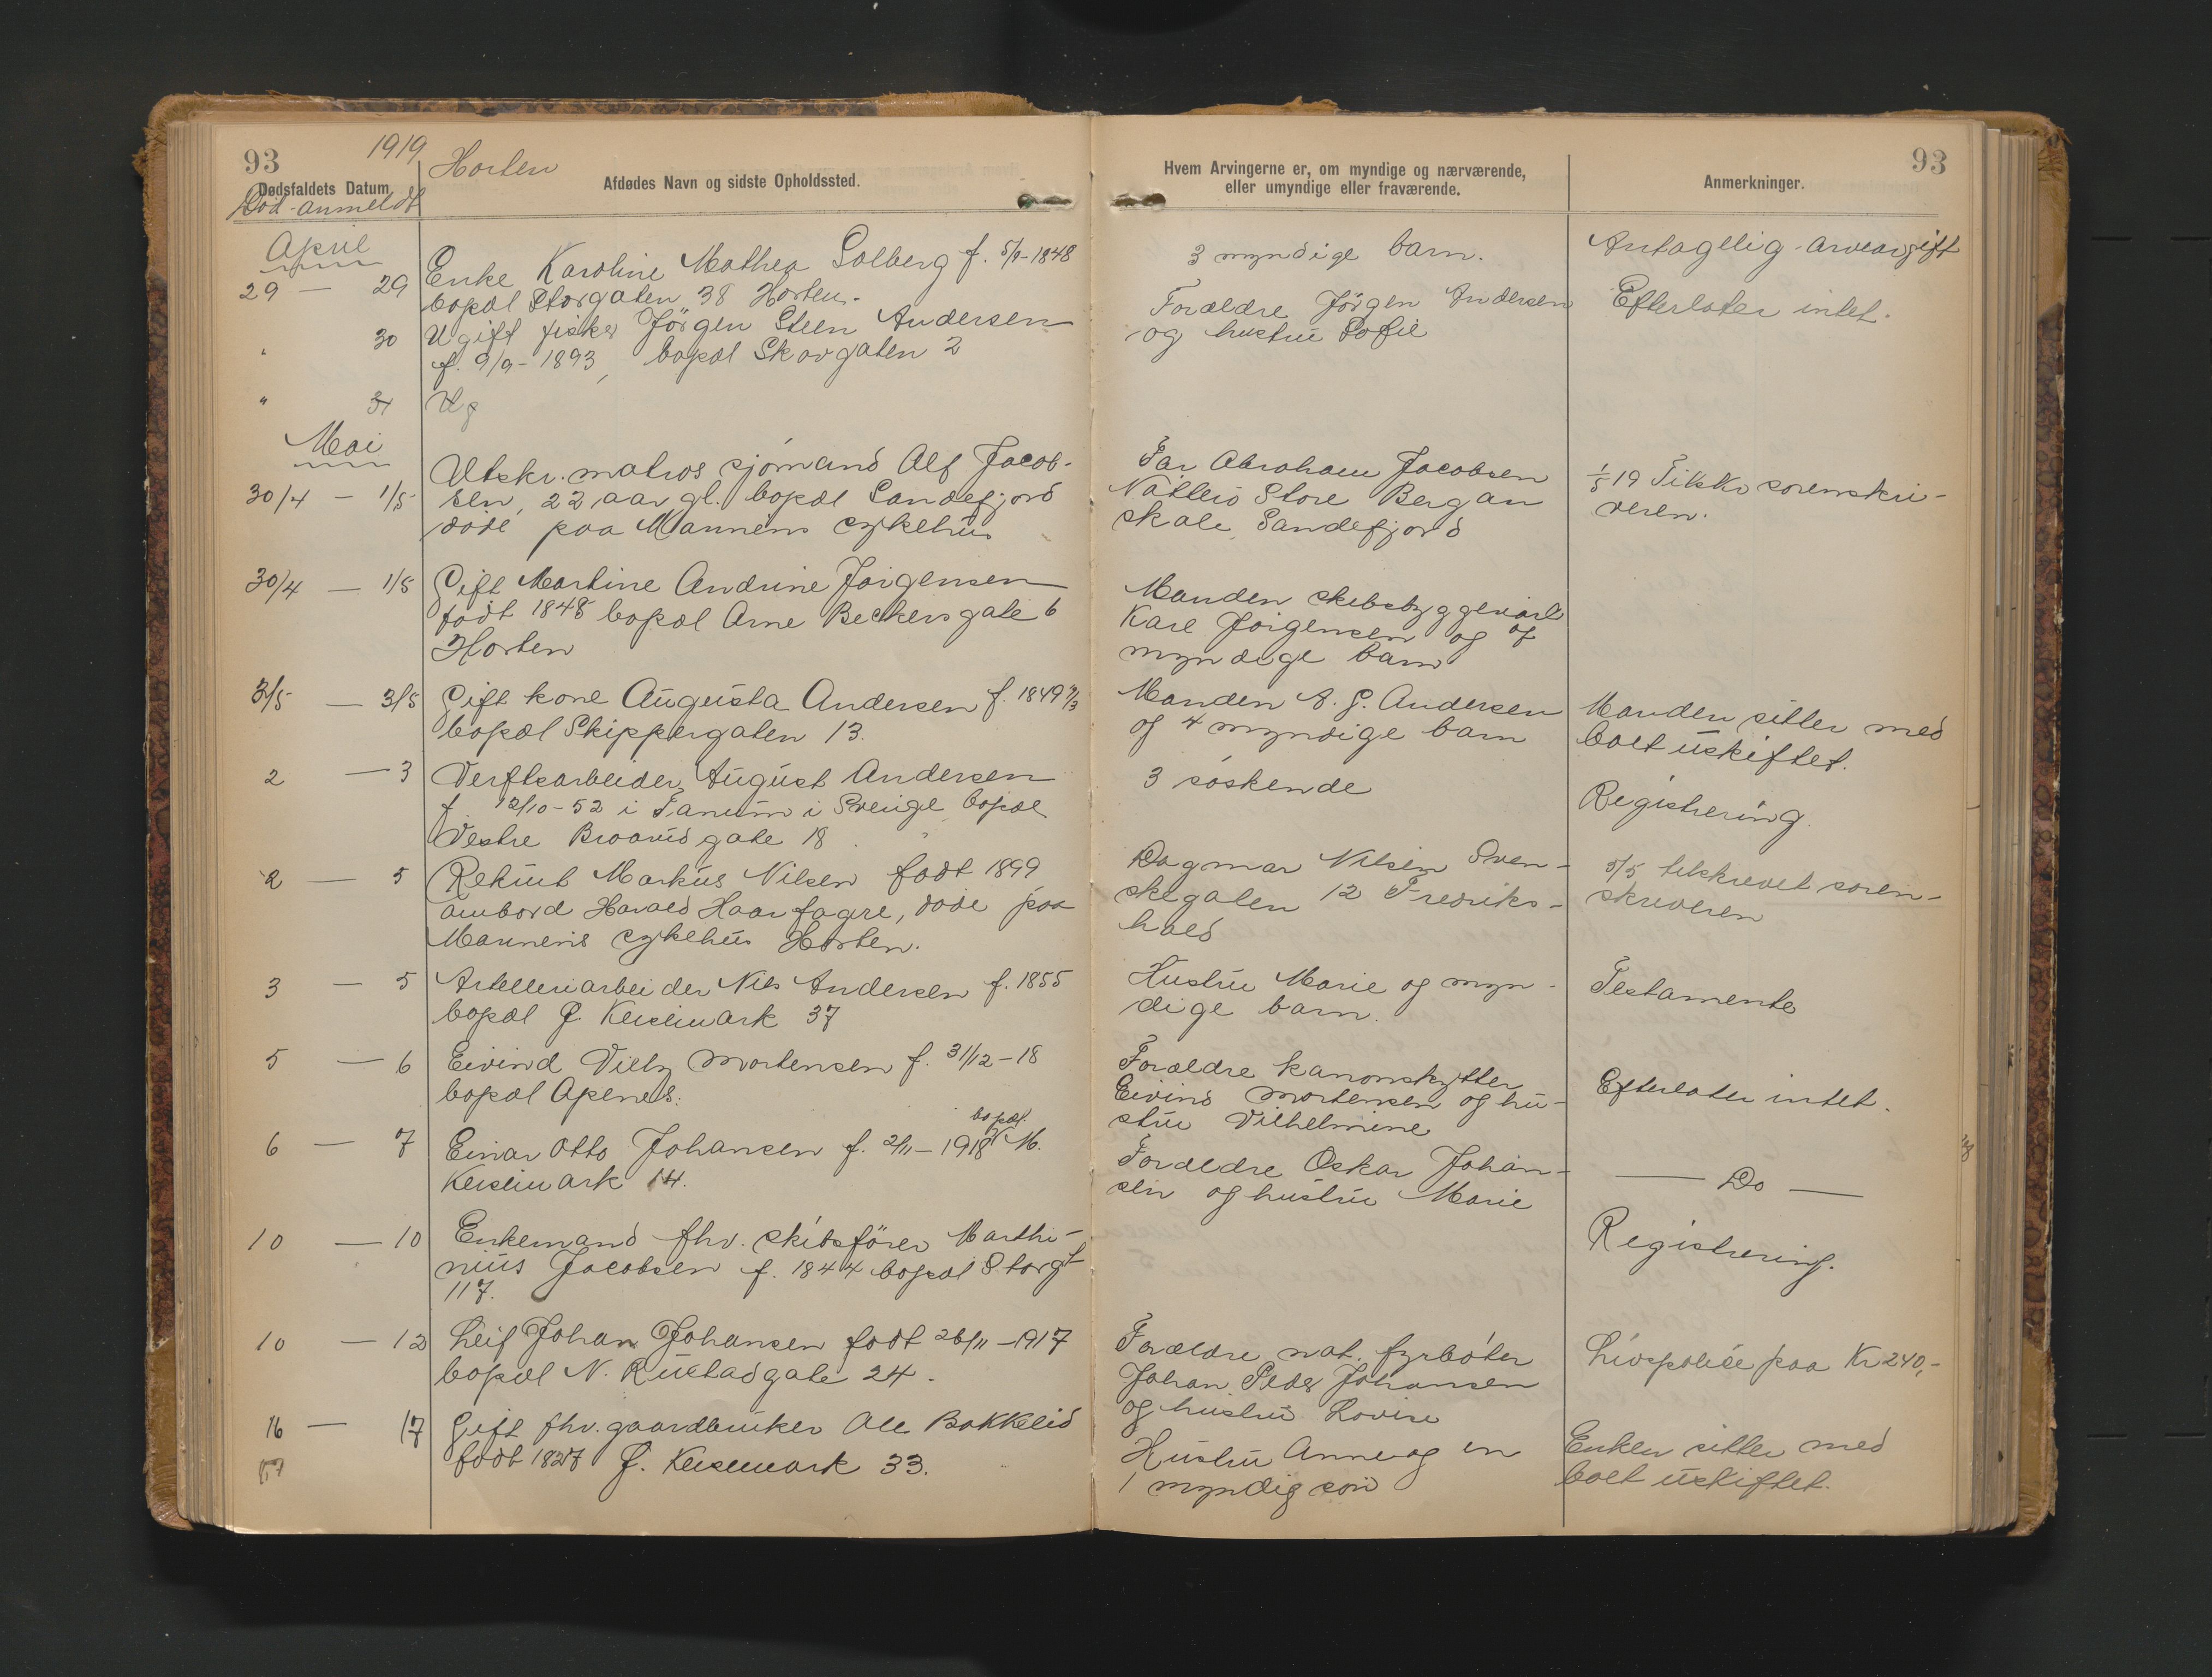 93
1919 Horten
Dødsfaldets Datum.
Död - anmeldt
Afdødes Navn og sidste Opholdssted.
Hvem Arvingerne er, om myndige og nærværende,
eller umyndige eller fraværende.
Anmerkninger.
93
April
29 — 29
Enke Karoline Mathea Solberg f. 5/9-1848
bopæl Storgaten 38 Horten.
3 myndige barn.
Antagelig arveavgift
" 30
Ugift fisker Jörgen Steen Andersen
f. 9/9-1893, bopæl Skovgaten 2
Forældre Jörgen Andersen
og hustru Sofie
Efterlater intet.
" 31
Ug
Mai
30/4 — 1/5
Utskr. matros sjömand Alf Jacob-
sen, 22 aar gl. bopæl Sandefjord
döde paa Marinens sykehus
Far Abraham Jacobsen
Store Bergan
skole, Sandefjord
1/5 19 Tilskr. sorenskri-
veren.
30/4 — 1/5
Gift Martine Andrine Jörgensen
födt 1848 bopæl Arne Beckersgate 6
Horten
Manden
Karl Jörgensen og
myndige barn
3/5 — 3/5
Gift kone Augusta Andersen f. 1849
bopæl Skippergaten 13.
Manden A. G. Andersen
og 4 myndige barn
Manden sitter med
boet uskiftet.
2 — 3
Verftsarbeider August Andersen
f. 12/10-52 i Tanum i Sverige bopæl
Vestre Braarudgate 18
3 söskende
Registrering.
2 — 5
Rekrut Markus Nilsen födt 1899
ambord Harald Haarfagre, döde paa
Marinens sykehus Horten.
Dagmar Nilsen Sven-
skegaten 12 Fredriks-
hald
5/5 tilskrevet soren-
skriveren
3 — 5
Artilleriarbeider Nils Andersen f. 1855
bopæl Ö. Keisemark 37
Hustru Marie og myn-
dige barn.
Testamente
5 — 6
Eivind Villy Mortensen f. 31/12-18
bopæl Apenes.
Forældre kanonskytter
Eivind Mortensen og hu-
stru Vilhelmine
Efterlater intet.
6 — 7
Einar Otto Johansen f. 2/11-1918 bopæl. M.
Keisemark 14.
Forældre Oskar Johan-
sen og hustru Marie
— Do —
10 — 10
Enkemand fhv. skibsförer Marthi-
nius Jacobsen f. 1844 bopæl Storgt
117.
Registrering.
10 — 12
Leif Johan Johansen födt 26/11-1917
bopæl N. Rustadgate 24.
Forældre mat. fyrböter
Johan Peder Johansen
og hustru Lovise
Livspolise paa Kr 240,-
16 — 17
Gift fhv. gaardbruker Ole Bakkelid
födt 1827 Ö. Keisemark 33.
Hustru Anne og en
1 myndig sön
Enken sitter med
boet uskiftet.
17